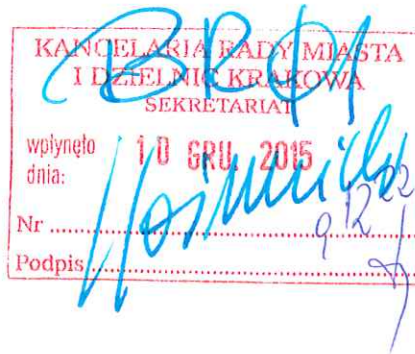 BRM
KANCELARIA RADY MIASTA
I DZIELNIC KRAKOWA
SEKRETARIAT
wpłynęło
dnia:
10 GRU. 2015
Nr
Podpis